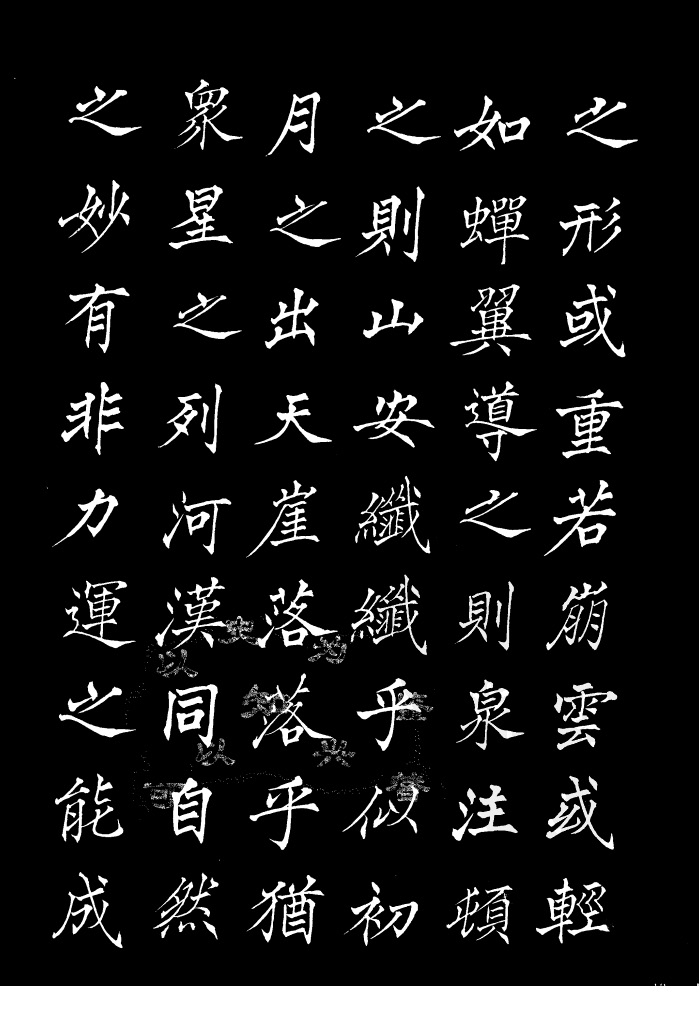 之形或重若崩雲或輕
如蟬翼導之則泉注頓
之則山安纖纖乎似初
月之出天崖落落乎猶
衆星之列河漢同自然
之妙有非力運之能成